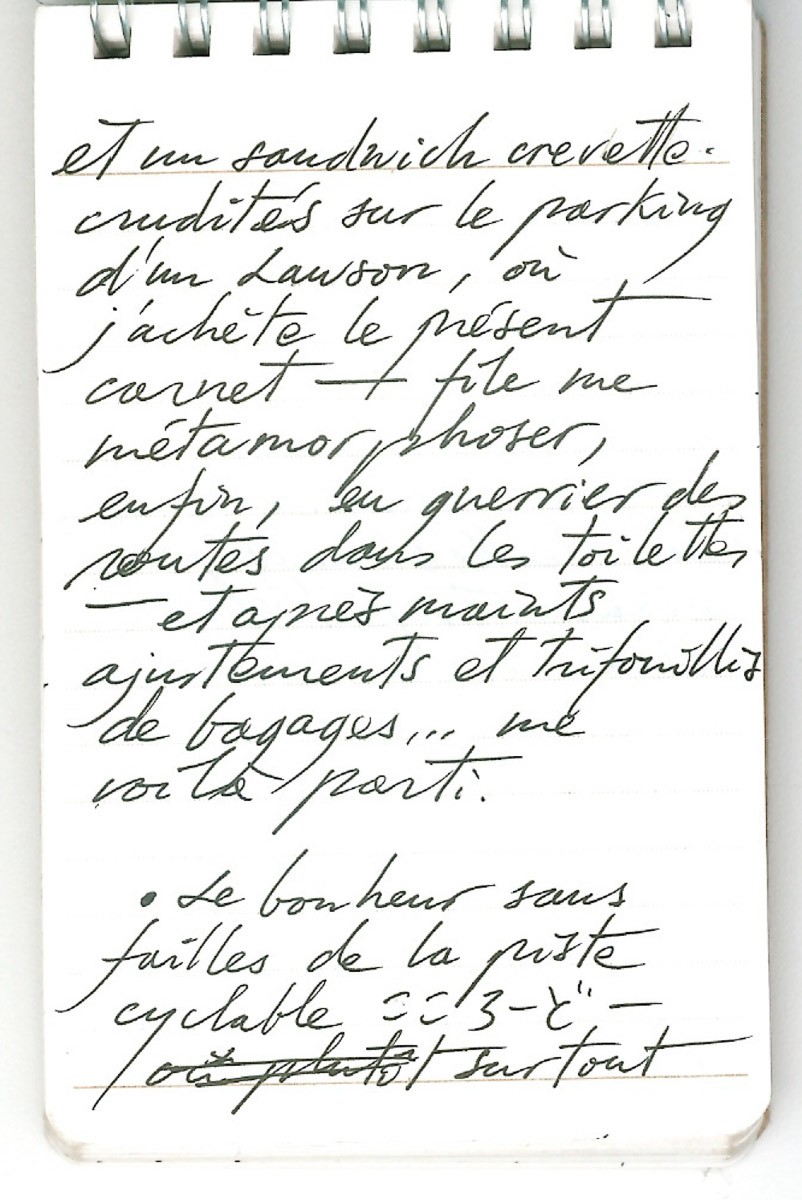 et un sandwich crevette-
crudités sur le parking
d'un Lawson, où
j'achète le présent
carnet — file me
métamorphoser,
enfin, en guerrier des
routes dans les toilettes
— et après maints
ajustements et trifouillis
de bagages... me
voilà parti.
• Le bonheur sans
failles de la piste
cyclable ニニヨード —
ou plutôt surtout